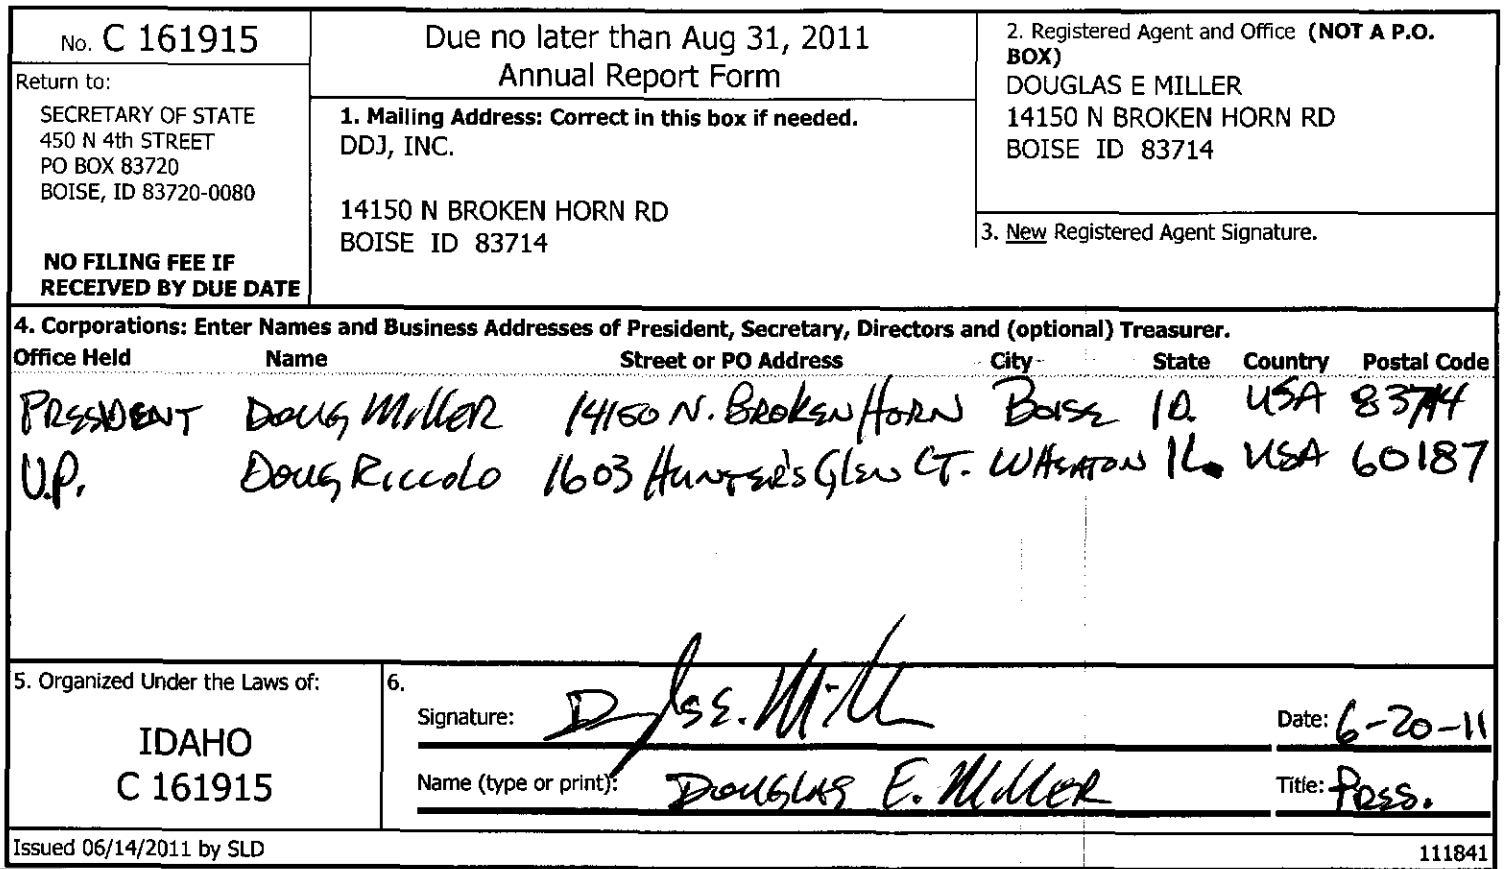 No. C 161915
Return to:
SECRETARY OF STATE
450 N 4th STREET
PO BOX 83720
BOISE, ID 83720-0080
NO FILING FEE IF
RECEIVED BY DUE DATE
Due no later than Aug 31, 2011
Annual Report Form
1. Mailing Address: Correct in this box if needed.
DDJ, INC.
14150 N BROKEN HORN RD
BOISE ID 83714
2. Registered Agent and Office (NOT A P.O.
BOX)
DOUGLAS E MILLER
14150 N BROKEN HORN RD
BOISE ID 83714
3. New Registered Agent Signature.
4. Corporations: Enter Names and Business Addresses of President, Secretary, Directors and (optional) Treasurer.
Office Held Name Street or PO Address City State Country Postal Code
PRESIDENT DOUG MILLER 14150 N. BROKEN HORN BOISE ID. USA 83714
V.P. DOUG RICCOLO 1603 HUNTER'S GLEN CT. WHEATON IL. USA 60187
5. Organized Under the Laws of:
IDAHO
C 161915
6.
Signature: Douglas E. Miller
Date: 6-20-11
Name (type or print): DOUGLAS E. MILLER
Title: PRES.
Issued 06/14/2011 by SLD
111841